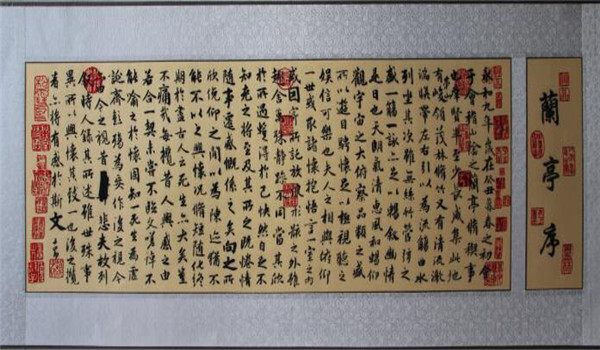 蘭亭序
永和九年歲在癸丑暮春之初會
于會稽山陰之蘭亭脩稧事
也群賢畢至少長咸集此地
有峻領茂林脩竹又有清流激
湍暎帶左右引以為流觴曲水
列坐其次雖無絲竹管弦之
盛一觴一詠亦足以暢叙幽情
是日也天朗氣清惠風和暢仰
觀宇宙之大俯察品類之盛
所以遊目騁懷足以極視聽之
娛信可樂也夫人之相與俯仰
一世或取諸懷抱悟言一室之內
或因寄所託放浪形骸之外雖
趣舍萬殊靜躁不同當其欣
於所遇暫得於己快然自足不
知老之將至及其所之既惓情
隨事遷感慨係之矣向之所
欣俛仰之間以為陳迹猶不
能不以之興懷況脩短隨化終
期於盡古人云死生亦大矣豈
不痛哉每攬昔人興感之由
若合一契未嘗不臨文嗟悼不
能喻之於懷固知一死生為虛
誕齊彭殤為妄作後之視今
亦由今之視昔 悲夫故列
叙時人錄其所述雖世殊事
異所以興懷其致一也後之攬
者亦將有感於斯文